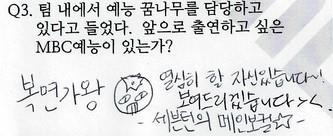 Q3. 팀 내에서 예능 꿈나무를 담당하고
있다고 들었다. 앞으로 출연하고 싶은
MBC예능이 있는가?
복면가왕
열심히 할 자신있습니다~!
보여드리겠습니다 ><
- 세븐틴의 메인보컬☆ -